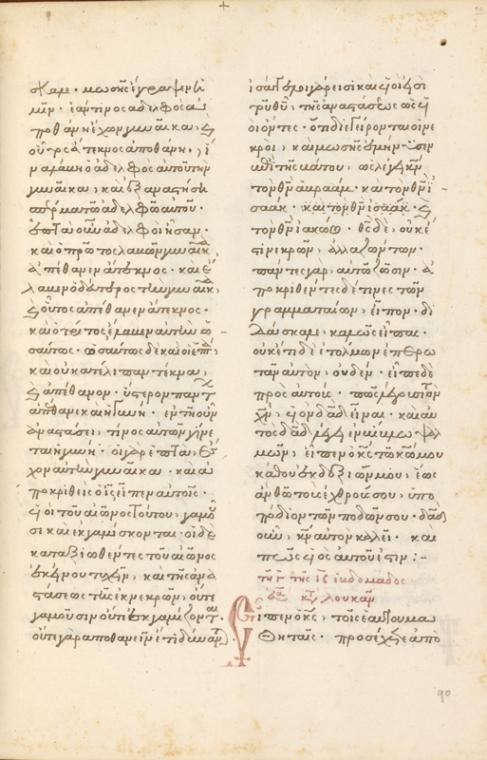 σκαλε · μωσῆς ἔγραψεν ἡ
μῖν · ἐάν τινος ἀδελφὸς ἀ
ποθάνῃ ἔχων γυναῖκα, καὶ
οὗτος ἄτεκνος ἀποθάνῃ, ἵ
να λάβῃ ὁ ἀδελφὸς αὐτοῦ τὴν
γυναῖκα, καὶ ἐξαναστήσῃ
σπέρμα τῷ ἀδελφῷ αὐτοῦ ·
ἑπτὰ οὖν ἀδελφοὶ ἦσαν ·
καὶ ὁ πρῶτος λαβὼν γυναῖκα
ἀπέθανεν ἄτεκνος · καὶ ἔ
λαβεν ὁ δεύτερος τὴν γυναῖκα,
καὶ οὗτος ἀπέθανεν ἄτεκνος ·
καὶ ὁ τρίτος ἔλαβεν αὐτὴν ὡ
σαύτως · ὡσαύτως δὲ καὶ οἱ ἑπτὰ ·
καὶ οὐ κατέλιπον τέκνα,
καὶ ἀπέθανον · ὕστερον πάντων
ἀπέθανε καὶ ἡ γυνή · ἐν τῇ οὖν
ἀναστάσει, τίνος αὐτῶν γίνε
ται γυνή · οἱ γὰρ ἑπτὰ, ἔσ
χον αὐτὴν γυναῖκα · καὶ ἀ
ποκριθεὶς ὁ ις εἶπεν αὐτοῖς ·
οἱ υἱοὶ τοῦ αἰῶνος τούτου, γαμοῦ
σι καὶ ἐκγαμίσκονται · οἱ δὲ
καταξιωθέντες τοῦ αἰῶνος
ἐκείνου τυχεῖν, καὶ τῆς ἀνα
στάσεως τῆς ἐκ νεκρῶν, οὔτε
γαμοῦσιν οὔτε ἐκγαμίζονται
οὔτε γὰρ ἀποθανεῖν ἔτι δύνανται ·
ἰσάγγελοι γάρ εἰσι καὶ υἱοί εἰσι
τοῦ θυ, τῆς ἀναστάσεως υἱ
οὶ ὄντες · ὅτι δὲ ἐγείρονται οἱ νε
κροὶ, καὶ μωσῆς ἐμήνυσεν
ἐπὶ τῆς βάτου, ὡς λέγει κν
τὸν θν ἀβραὰμ · καὶ τὸν θν ἰ
σαάκ · καὶ τὸν θν ἰσαάκ · καὶ
τὸν θν ἰακώβ · θς δὲ, οὐκ ἔ
στι νεκρῶν, ἀλλὰ ζώντων ·
πάντες γὰρ, αὐτῷ ζῶσιν · ἀ
ποκριθέντες δέ τινες τῶν
γραμματαίων, εἶπον · δι
δάσκαλε, καλῶς εἶπας ·
οὐκέτι δὲ ἐτόλμων ἐπερω
τᾶν αὐτὸν, οὐδέν · εἶπε δὲ
πρὸς αὐτούς · πῶς λέγουσι τὸν
χν, υἱὸν δαδ εἶναι · καὶ αὐ
τὸς δαδ λέγει ἐν βίβλω ψαλ
μῶν, εἶπεν ὁ κς τῷ κω μου
κάθου ἐκ δεξιῶν μου, ἕως
ἂν θῶ τοὺς ἐχθρούς σου, ὑπο
πόδιον τῶν ποδῶν σου · δαδ
οὖν, κν αὐτὸν καλεῖ · καὶ
πῶς υἱὸς αὐτοῦ ἐστιν :-
τῆ γ τῆς ις ἑβδομάδος
ἐκ τοῦ κατὰ λουκᾶν
Εἶπεν ὁ κς, τοῖς ἑαυτοῦ μα
θηταῖς · προσέχετε ἀπὸ
90